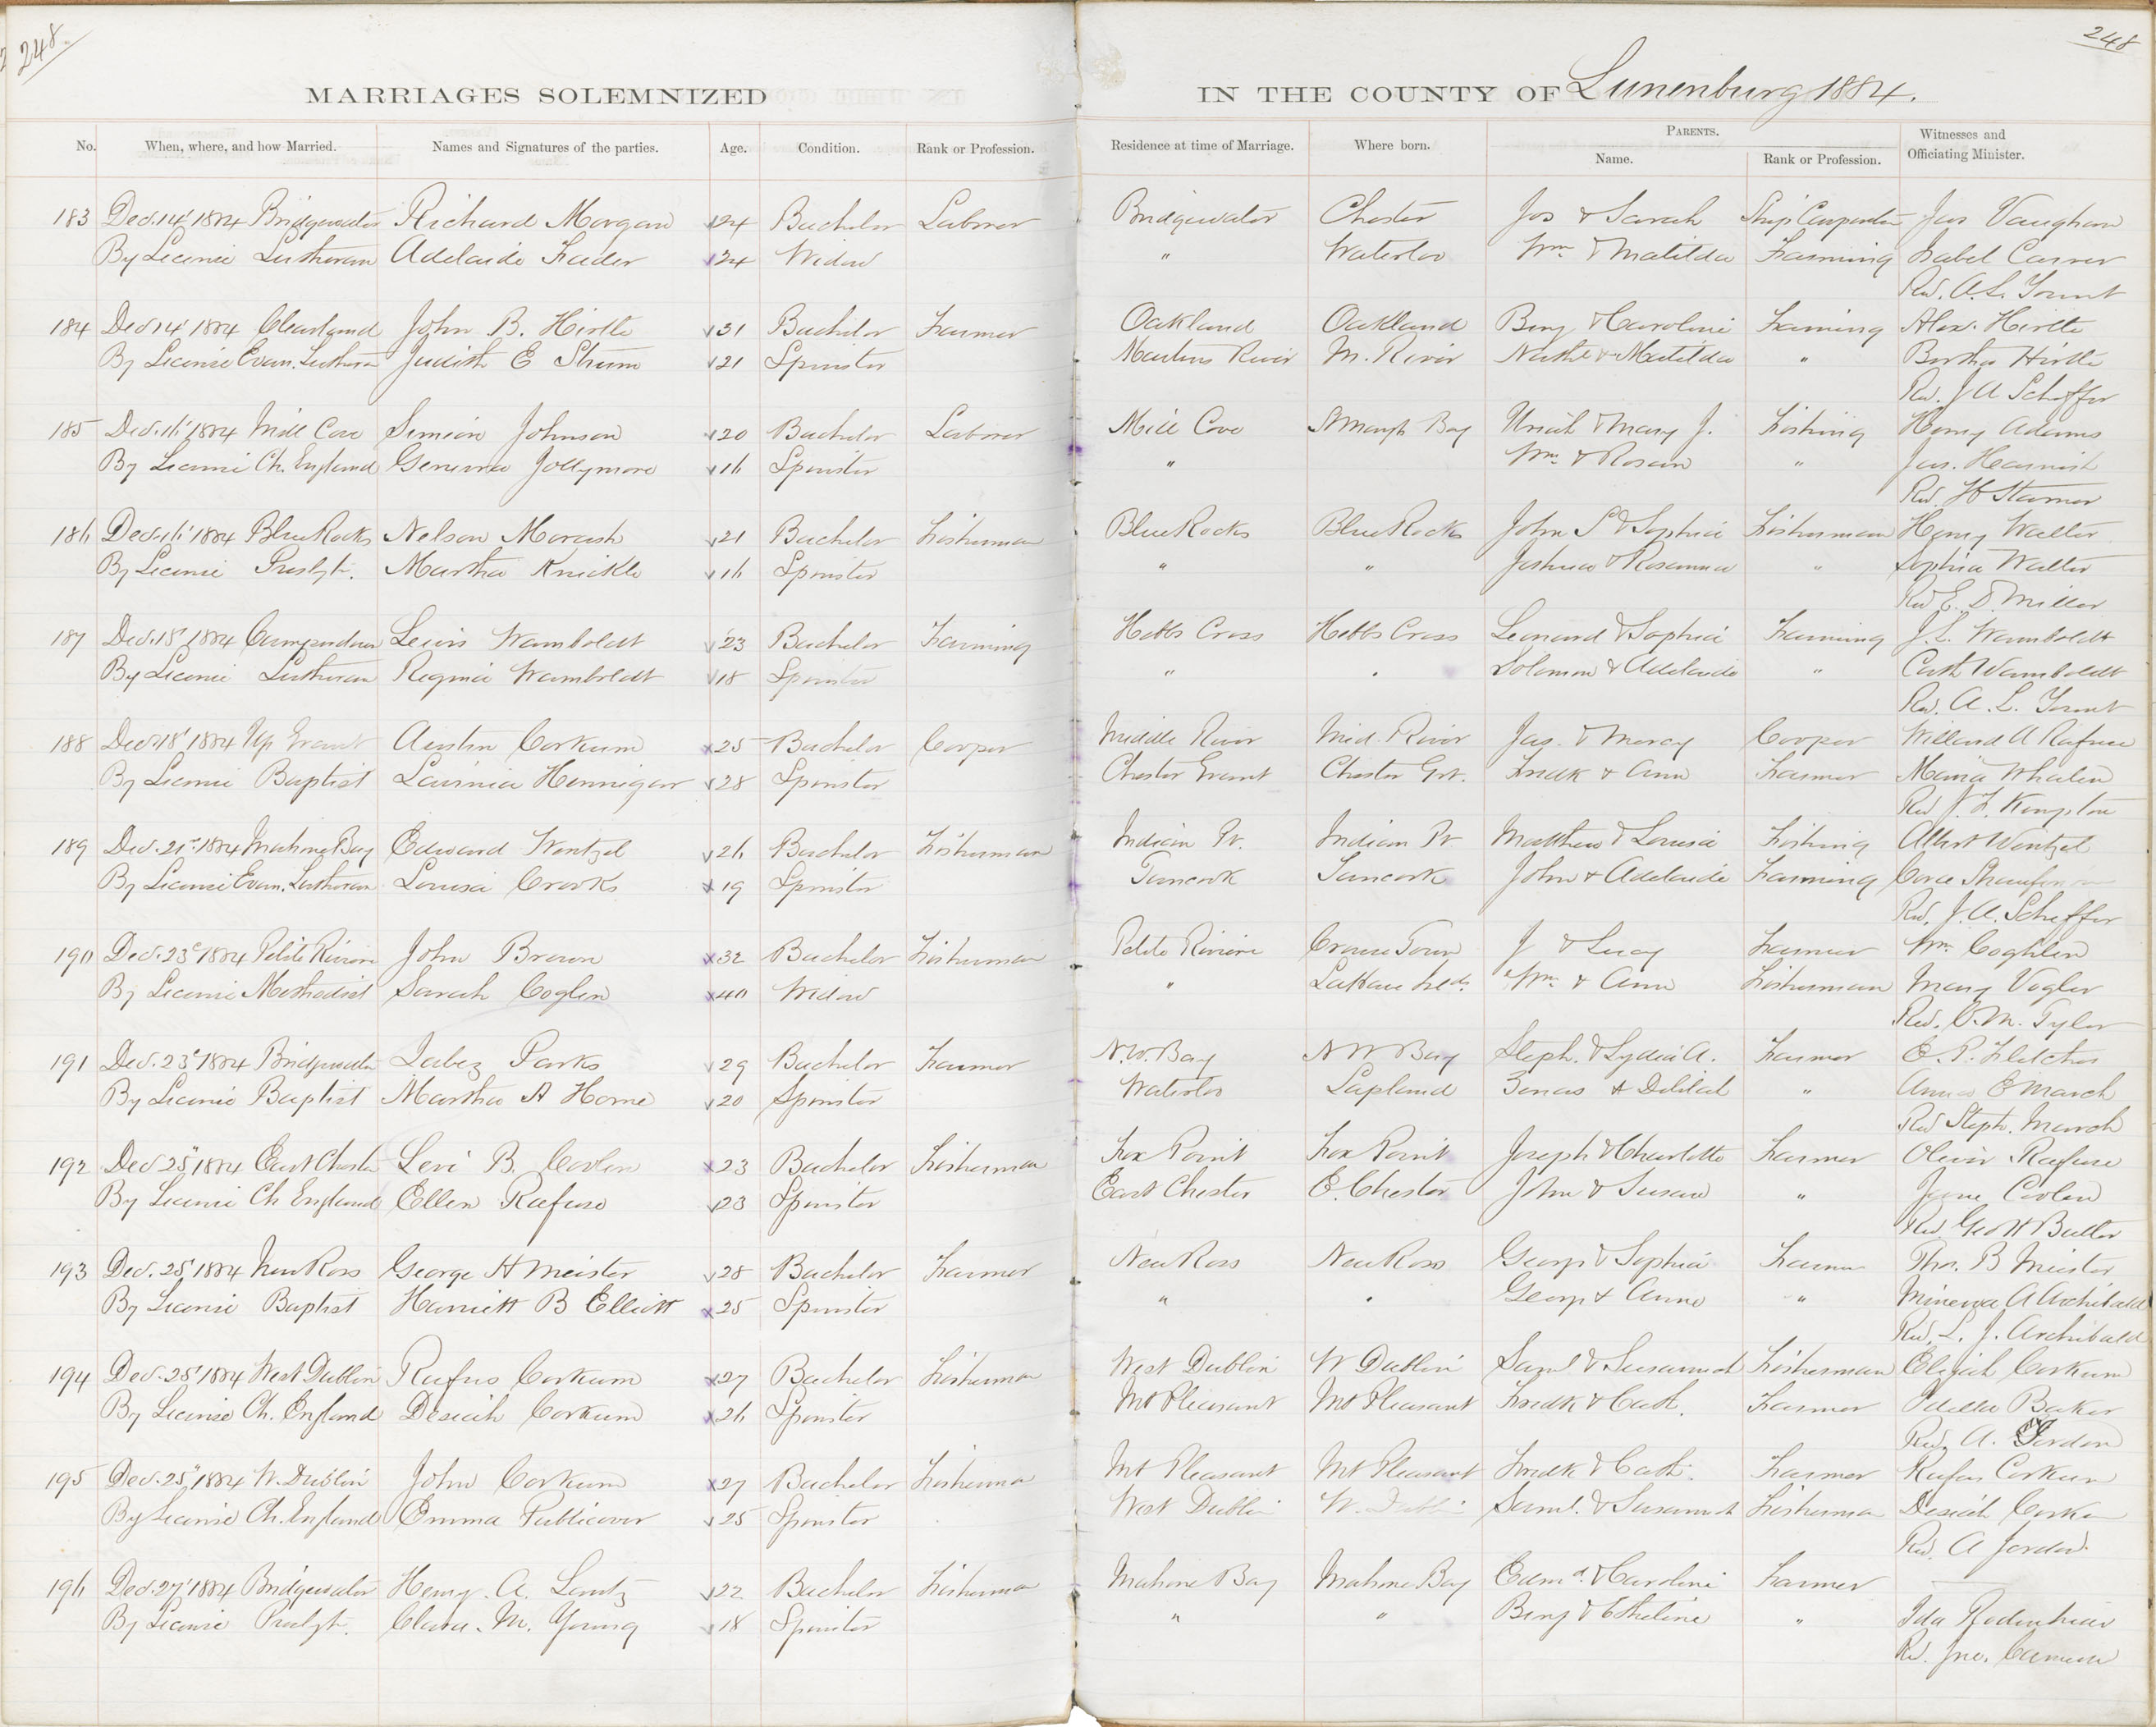 248.
248
MARRIAGES SOLEMNIZED IN THE COUNTY OF Lunenburg 1884.
No. When, where, and how Married. Names and Signatures of the parties. Age. Condition. Rank or Profession. Residence at time of Marriage. Where born. PARENTS. Name. Rank or Profession. Witnesses and Officiating Minister.
183 Dec. 14' 1884 Bridgewater Richard Morgan 24 Bachelor Laborer Bridgewater Chester Jos & Sarah Ship Carpenter Jas Vaughan
By License Lutheran Adelaide 24 Widow " Waterloo Wm & Matilda Farming Isabel
Rev. A. L. Yount
184 Dec 14' 1884 Clearland John B. Hirtle 31 Bachelor Farmer Oakland Oakland Benj & Caroline Farming Alex. Hirtle
By License Evan. Lutheran Judith E 21 Spinster Martins River M. River Nathl & Matilda " Bertha Hirtle
Rev. J A Scheffer
185 Dec. 16' 1884 Mill Cove Simeon Johnson 20 Bachelor Laborer Mill Cove St Margts Bay Uriah & Mary J. Fishing Henry Adams
By License Ch. England Geneva Jollymore 16 Spinster " Wm & Rosan " Jas. Harnish
Rev. H Stamer
186 Dec. 16' 1884 Blue Rocks Nelson Morash 21 Bachelor Fisherman Blue Rocks Blue Rocks John S & Sophia Fisherman Henry Walter
By License Presbytr. Martha Knickle 16 Spinster " " Joshua & Rosanna " Sophia Walter
Rev E. D. Miller
187 Dec. 18' 1884 Lewis Wamboldt 23 Bachelor Farming Hebbs Cross Hebbs Cross Leonard & Sophia Farming J. L. Wamboldt
By License Lutheran Regina Wamboldt 18 Spinster " " Solomon & Adelaide " Cath Wamboldt
Rev. A. L. Yount
188 Dec 18' 1884 Up Grant Austin Corkum 25 Bachelor Cooper Middle River Mid. River Jas. & Mercy Cooper Willard A Rafuse
By License Baptist Lavinia Hennigar 28 Spinster Chester Grant Chester Grt. Fredk & Ann Farmer Maria Whalen
Rev J. F. Kempton
189 Dec. 21st 1884 Mahone Bay Edward Wentzel 26 Bachelor Fisherman Indian Pt. Indian Pt Matthew & Louisa Fishing Albert Wentzel
By License Evan. Lutheran Louisa Crooks 19 Spinster Tancook Tancook John & Adelaide Farming Cora
Rev. J. A. Scheffer
190 Dec. 23d 1884 Petite Riviere John Brown 32 Bachelor Fisherman Petite Riviere Crouse Town J & Lucy Farmer Wm Coghlen
By License Methodist Sarah Coglen 40 Widow " LaHave Islds. Wm & Ann Fisherman Mary Vogler
Rev. C. M. Tyler
191 Dec. 23d 1884 Bridgewater Jabez Parks 29 Bachelor Farmer N.W. Bay N W Bay Steph. & Lydia A. Farmer E. P. Fletcher
By License Baptist Martha A Horne 20 Spinster Waterloo Lapland Zenas & Delilah " Annie E March
Rev Steph. March
192 Dec 25" 1884 East Chester Levi B. Coolen 23 Bachelor Fisherman Fox Point Fox Point Joseph & Charlotte Farmer Oliver Rafuse
By License Ch England Ellen Rafuse 23 Spinster East Chester E. Chester John & Susan " Coolen
Rev Geo H Butler
193 Dec. 25' 1884 New Ross George H Meister 28 Bachelor Farmer New Ross New Ross George & Sophia Farmer Thos. B Meister
By License Baptist Harriett B Elliott 25 Spinster " " George & Anne " Minerva A Archibald
Rev. L. J. Archibald
194 Dec. 25' 1884 West Dublin Rufus Corkum 27 Bachelor Fisherman West Dublin W Dublin Saml & Susannah Fisherman Elijah Corkum
By License Ch. England Desiah Corkum 26 Spinster Mt Pleasant Mt Pleasant Fredk & Cath. Farmer Odella Baker
Rev. A. Jordan
195 Dec. 25" 1884 W. Dublin John Corkum 27 Bachelor Fisherman Mt Pleasant Mt Pleasant Fredk & Cath. Farmer Rufus Corkum
By License Ch. England Emma Publicover 25 Spinster West Dublin W. Dublin Saml. & Susannah Fisherman Desiah Corkum
Rev. A Jordan.
196 Dec. 27' 1884 Bridgewater Henry. A. Lantz 22 Bachelor Fisherman Mahone Bay Mahone Bay Edmd. & Caroline Farmer
By License Presbyt. Clara. M. Young 18 Spinster " " Benj & " Ida Rodenhiser
Rev. Jno. Cameron